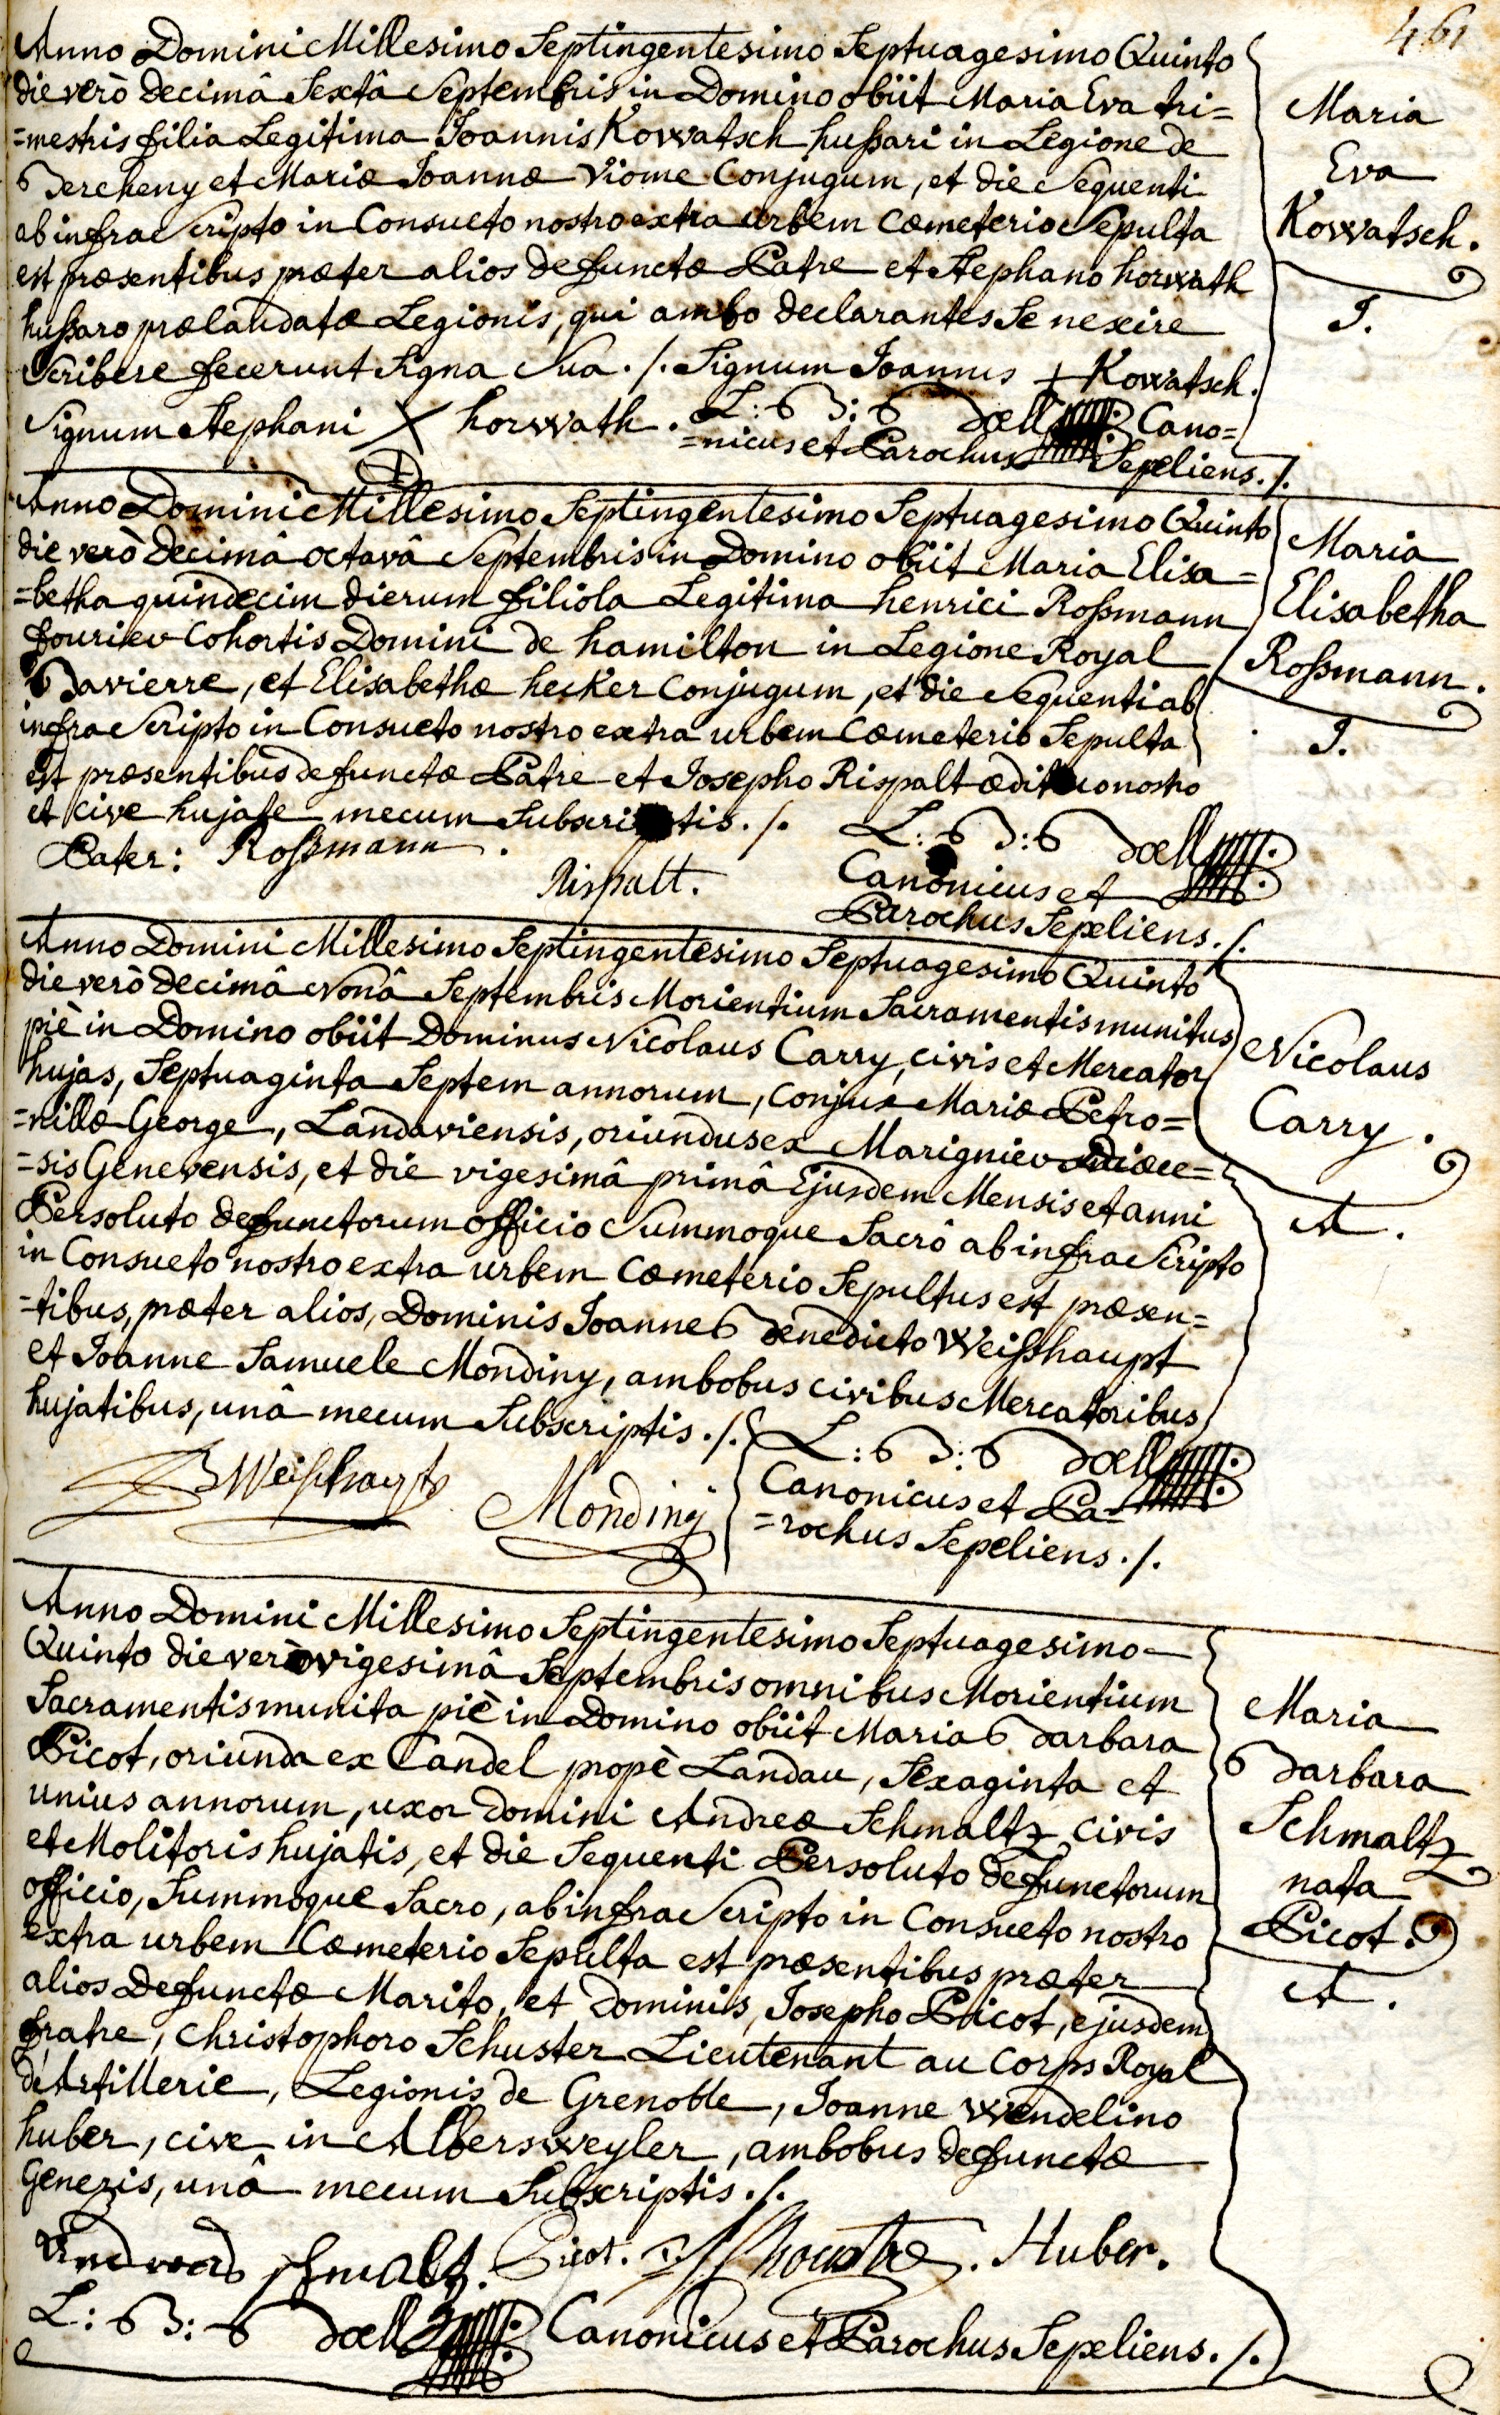 461
Anno Domini Millesimo Septingentesimo Septuagesimo Quinto
die verò decimâ Sextâ Septembris in Domino obiit Maria Eva tri=
=mestris filia Legitima Joannis Kowatsch hußari in Legione de
Bercheny et Mariæ Joannæ Viome Conjugum, et die Sequenti
ab infra Scripto in Consueto nostro extra urbem Cœmeterio Sepulta
est præsentibus præter alios defunctæ Patre et Stephano horwath
hußaro prælaudatæ Legionis, qui ambo declarantes Se nescire
Scribere fecerunt Signa Sua ./. Signum Joannis + Kowatsch.
Signum Stephani X horwath. L: B: Bœll Cano=
=nicus et Parochus Sepeliens ./.
Maria
Eva
Kowatsch.
J.
Anno Domini Millesimo Septingentesimo Septuagesimo Quinto
die verò decimâ octavâ Septembris in Domino obiit Maria Elisa=
=betha quindecim dierum filiola Legitima henrici Roßmann
fourier Cohortis Domini de hamilton in Legione Royal
Bavierre, et Elisabethæ hecker Conjugum, et die Sequenti ab
infra Scripto in Consueto nostro extra urbem Cœmeterio Sepulta
est præsentibus defunctæ Patre et Josepho Rispalt ædituo nostro
et cive hujate mecum Subscriptis ./.
Pater: Roßmann.
Rispalt.
L: B: Bœll
Canonicus et
Parochus Sepeliens ./.
Maria
Elisabetha
Roßmann.
J.
Anno Domini Millesimo Septingentesimo Septuagesimo Quinto
die verò decimâ Nonâ Septembris Morientium Sacramentis munitus
piè in Domino obiit Dominus Nicolaus Carry, civis et Mercator
hujas, Septuaginta Septem annorum, Conjux Mariæ Petro=
=nillæ George, Landaviensis, oriundus ex Marignier Diœce=
=sis Genevensis, et die vigesimâ primâ Ejusdem Mensis et anni
Persoluto defunctorum officio Summoque Sacrô ab infra Scripto
in Consueto nostro extra urbem Cœmeterio Sepultus est præsen=
=tibus, præter alios, Dominis Joanne Benedicto Weißhaupt
et Joanne Samuele Mondiny, ambobus civibus Mercatoribus
hujatibus, unâ mecum Subscriptis ./.
B Weißhaupt
Mondinÿ
L: B: Bœll
Canonicus et Pa=
=rochus Sepeliens ./.
Nicolaus
Carry.
A.
Anno Domini Millesimo Septingentesimo Septuagesimo
Quinto die verò vigesimâ Septembris omnibus Morientium
Sacramentis munita piè in Domino obiit Maria Barbara
Picot, oriunda ex Candel propè Landau, Sexaginta et
unius annorum, uxor Domini Andreæ Schmaltz civis
et Molitoris hujatis, et die Sequenti Persoluto defunctorum
officio, Summoque Sacro, ab infra Scripto in Consueto nostro
extra urbem Cœmeterio Sepulta est præsentibus præter
alios Defunctæ Marito, et Dominis, Josepho Picot, ejusdem
fratre, Christophoro Schuster Lieutenant au Corps Royal
d'Artillerie, Legionis de Grenoble, Joanne Wendelino
huber, cive in Albersweyler, ambobus defunctæ
Generis, unâ mecum Subscriptis ./.
Schmaltz. Picot. Huber.
L: B: Bœll Canonicus et Parochus Sepeliens ./.
Maria
Barbara
Schmaltz
nata
Picot.
A.